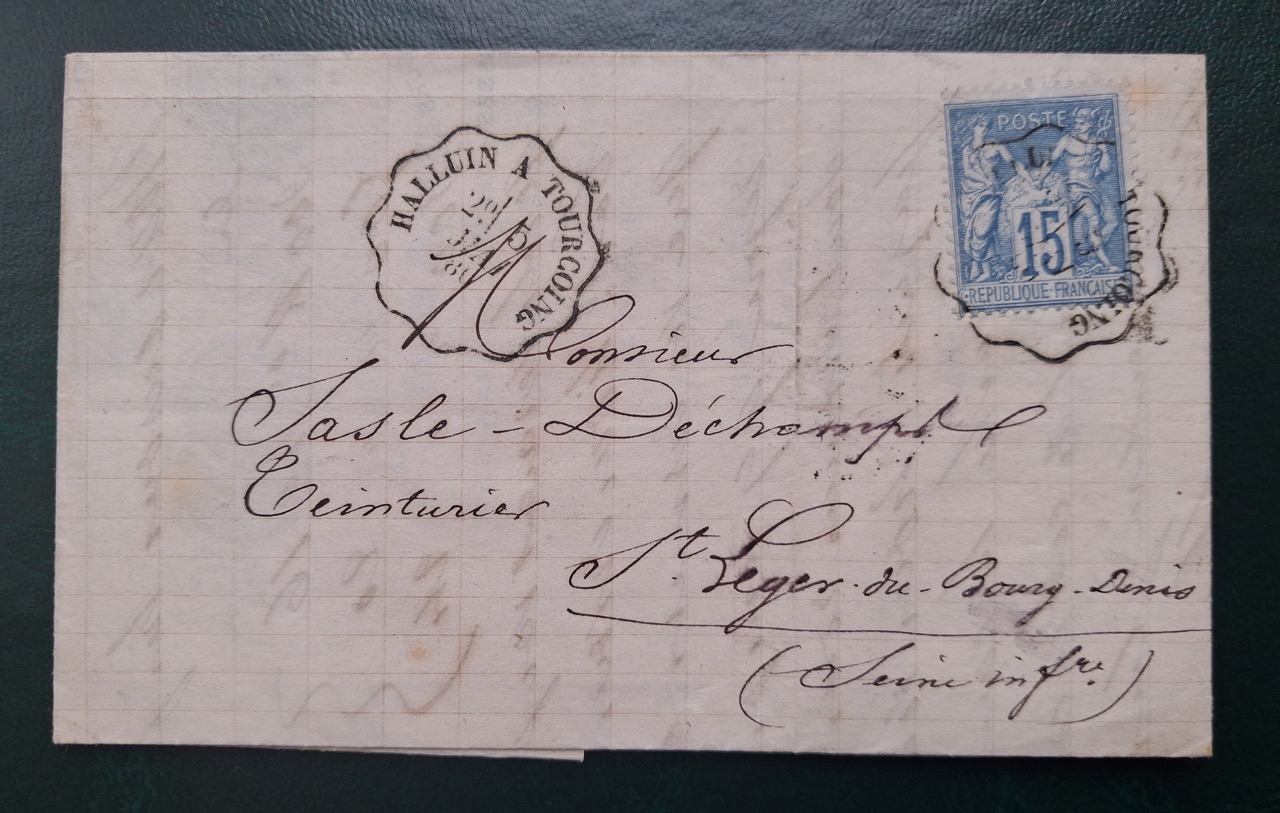 HALLUIN A TOURCOING
POSTE
15
REPUBLIQUE FRANCAISE
TOURCOING
Monsieur
Sasle - Déchamps
Teinturier
St. Leger-du-Bourg-Denis
(Seine infre)